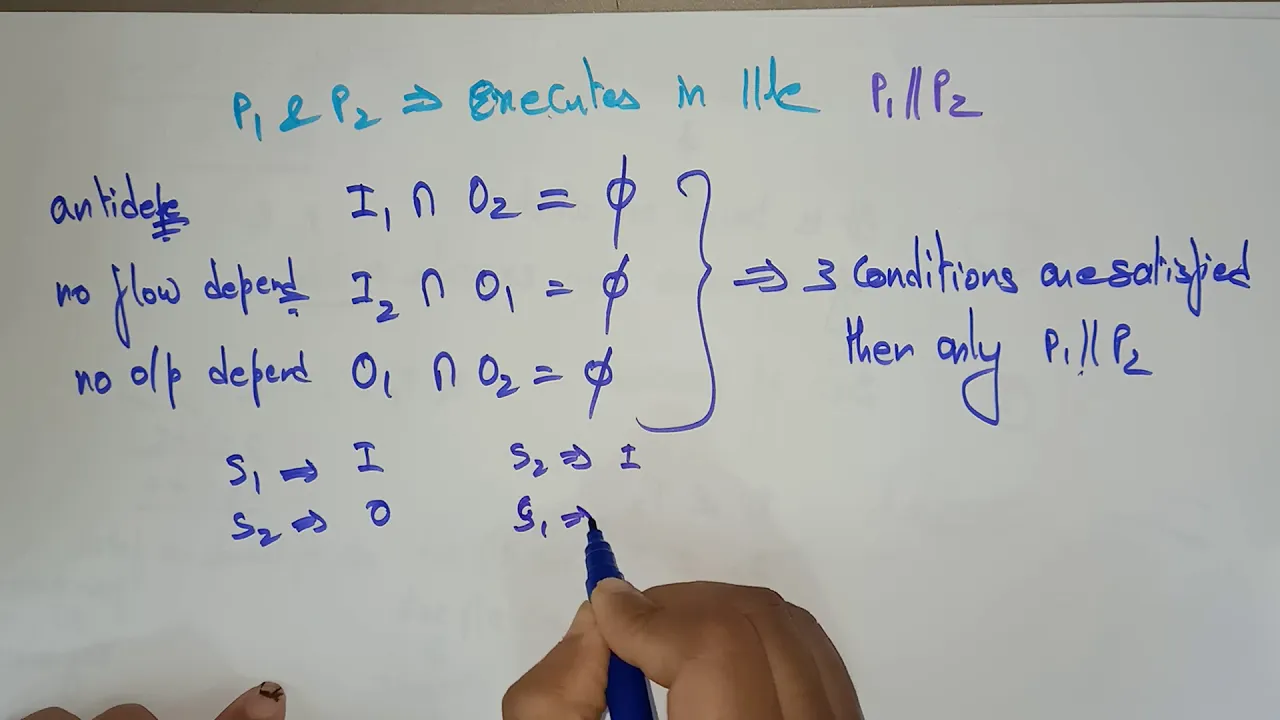 P₁ & P₂ ⇒ Executes in ||le P₁ || P₂
I₁ ∩ O₂ = ϕ
no flow depend I₂ ∩ O₁ = ϕ
no o/p depend O₁ ∩ O₂ = ϕ
⇒ 3 Conditions are satisfied
then only P₁ || P₂
S₁ ⇒ I S₂ ⇒ I
S₂ ⇒ O S₁ ⇒